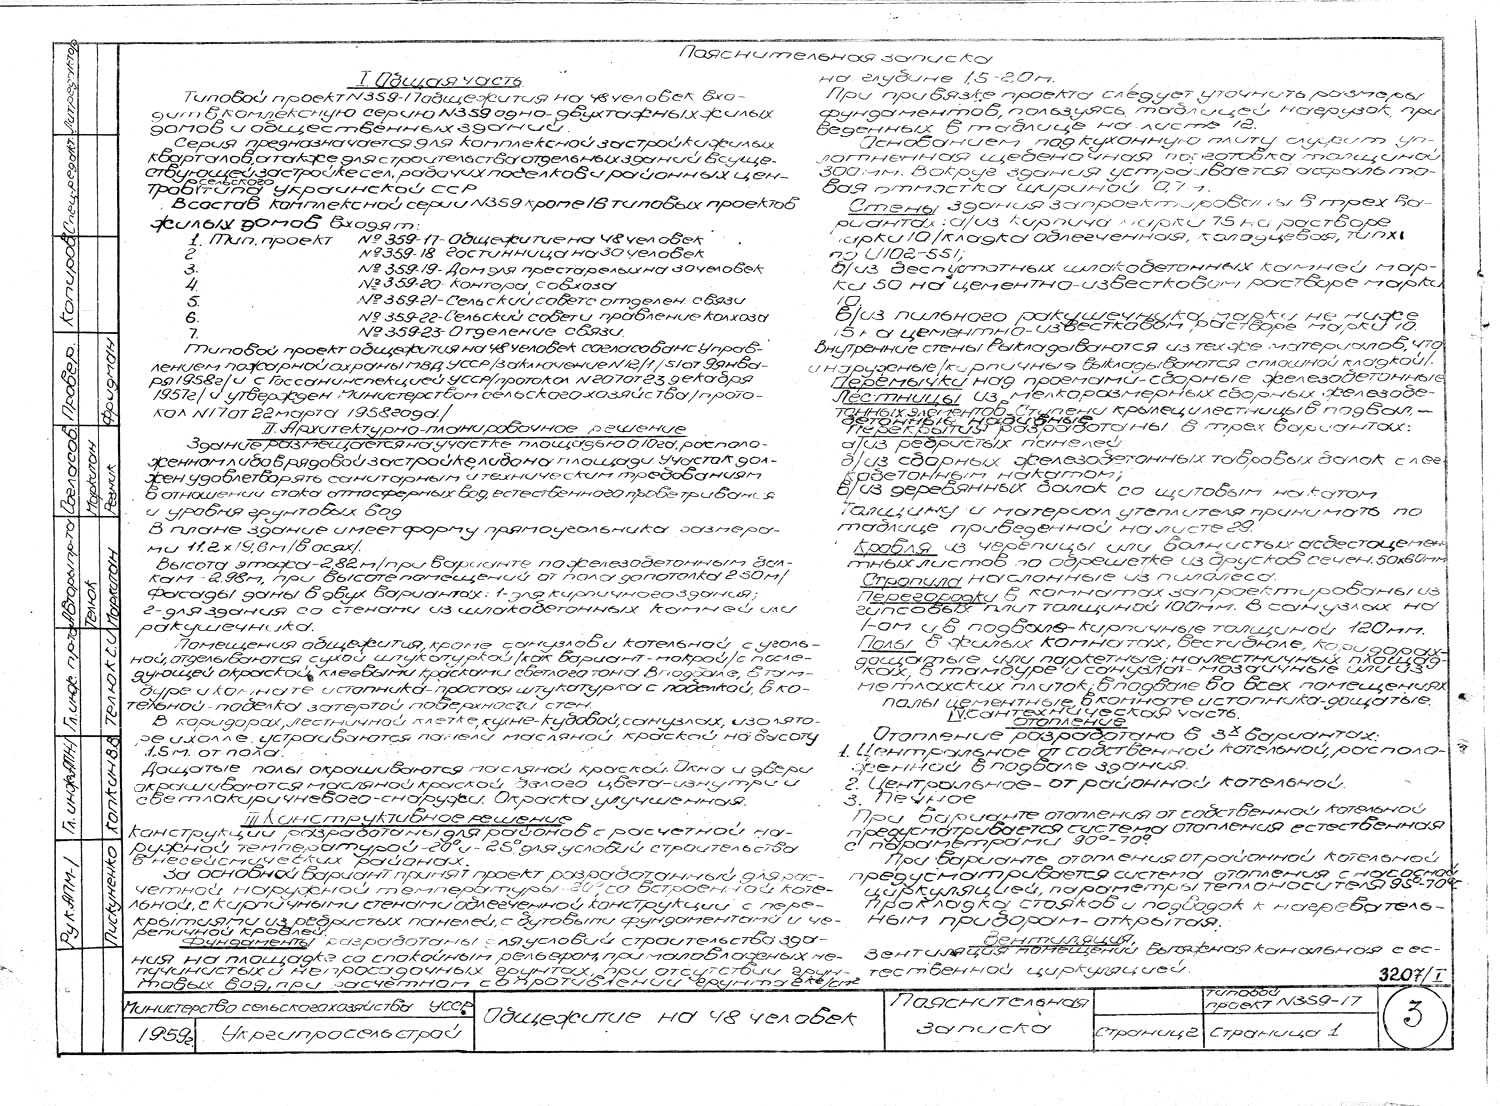 Пояснительная записка
I Общая часть
Типовой проект N359-17 общежития на 48 человек вхо-
дит в комплексную серию N359 одно-двухтажных жилых
домов и общественных зданий.
Серия предназначается для комплексной застройки жилых
кварталов, а также для строительства отдельных зданий в суще-
ствующей застройке сел, рабочих поселков и районных цен-
тров сельского типа Украинской ССР
В состав комплексной серии N359 кроме 16 типовых проектов
жилых домов входят:
1. Тип. проект № 359-17- Общежитие на 48 человек
2 № 359-18 Гостинница на 30 человек
3. № 359-19- Дом для престарелых на 30 человек
4. № 359-20 Контора совхоза
5. № 359-21- Сельский совет с отделен связи
6. № 359-22- Сельский совет и правление колхоза
7. № 359-23- Отделение связи.
Типовой проект общежития на 48 человек согласован с Управ-
лением пожарной охраны МВД УССР/заключение N12/1/51 от 9 янва-
ря 1958г/ и с Госсанинспекцией УССР/протокол N207 от 23 декабря
1957г/ и утвержден Министерством сельского хозяйства/прото-
кол N17 от 22 марта 1958 года./
II. Архитектурно-планировочное решение
Здание размещается на участке площадью 0,10га, располо-
женном либо в рядовой застройке, либо на площади. Участок дол-
жен удовлетворять санитарным и техническим требованиям
в отношении стока атмосферных вод, естественного проветривания
и уровня грунтовых вод
В плане здание имеет форму прямоугольника размера-
ми 11.2 х 19,6м/в осях/.
Высота этажа-2,82м/при варианте по железобетонным бал-
кам-2,98м, при высоте помещений от пола до потолка 2.50м/
Фасады даны в двух вариантах: 1-для кирпичного здания;
2-для здания со стенами из шлакобетонных камней или
ракушечника.
Помещения общежития, кроме санузлов и котельной с уголь-
ной, отделываются сухой штукатуркой/как вариант-мокрой/с после-
дующей окраской клеевыми красками светлого тона. В подвале, в там-
буре и комнате истопника-простая штукатурка с побелкой, в ко-
тельной-побелка затертой поверхности стен.
В коридорах, лестничной клетке, кухне-кубовой, санузлах, изолято-
ре и холле устраиваются панели масляной краской на высоту
1.5м. от пола.
Дощатые полы окрашиваются масляной краской. Окна и двери
окрашиваются масляной краской белого цвета-изнутри и
светлокоричневого-снаружи. Окраска улучшенная.
III Конструктивное решение
Конструкции разработаны для районов с расчетной на-
ружной температурой -20° и -25° для условий строительства
в несейсмических районах.
За основной вариант принят проект разработанный для рас-
четной наружной температуры -20° со встроенной коте-
льной, с кирпичными стенами облегченной конструкции с пере-
крытиями из ребристых панелей, с бутовыми фундаментами и че-
репичной кровлей.
Фундаменты разработаны для условий строительства зда-
ния на площадке со спокойным рельефом, при маловлажных не-
пучинистых и непросадочных грунтах, при отсутствии грун-
товых вод, при расчетном сопротивлении грунта 2 кг/см²
на глубине 1,5-2,0м.
При привязке проекта следует уточнить размеры
фундаментов, пользуясь таблицей нагрузок, при
веденных в таблице на листе 12.
Основанием под кухонную плиту служит уп-
лотненная щебеночная подготовка толщиной
300мм. Вокруг здания устраивается асфальто-
вая отмостка шириной 0,7 м.
Стены здания запроектированы в трех ва-
риантах: а/из кирпича марки 75 на растворе
марки 10/кладка облегченная, колодцевая, типа
по U102-551;
б/из деспустотных шлакобетонных камней мар-
ки 50 на цементно-известковом растворе марки
10.
в/из пильного ракушечника марки не ниже
15 на цементно-известковом растворе марки 10.
Внутренние стены выкладываются из тех же материалов, что
и наружные/кирпичные выкладываются сплошной кладкой/.
Перемычки над проемами-сборные железобетонные
Лестницы из мелкоразмерных сборных железобе-
тонных элементов. Ступени крылец и лестницы в подвал.-
бетонные набивные
Перекрытия разработаны в трех вариантах:
а/из ребристых панелей
б/из сборных железобетонных тавровых балок с лег-
кобетонным накатом;
в/из деревянных балок со щитовым накатом.
Толщину и материал утеплителя принимать по
таблице приведенной на листе 29.
Кровля из черепицы или волнистых асбестоцемен-
тных листов по обрешетке из брусков сечен. 50х60мм
Стропила наслонные из пиллеса.
Перегородки в комнатах запроектированы из
гипсовых плит толщиной 100мм. В санузлах на
1-ом и в подвале-кирпичные толщиной 120мм.
Полы в жилых комнатах, вестибюле, коридорах-
дощатые или паркетные; на лестничных площад-
ках, в тамбуре и санузлах-мозаичные или из
метлахских плиток; в подвале во всех помещениях
полы цементные, в комнате истопника-дощатые.
IV. Сантехническая часть.
Отопление
Отопление разработано в 3х вариантах:
1. Центральное от собственной котельной, располо-
женной в подвале здания.
2. Центральное-от районной котельной.
3. Печное
При варианте отопления от собственной котельной
предусматривается система отопления естественная
с параметрами 90°-70°
При варианте отопления от районной котельной
предусматривается система отопления с насосной
циркуляцией, параметры теплоносителя 95°-70°с
Прокладка стояков и подводок к нагреватель-
ным приборам-открытая.
Вентиляция.
Вентиляция помещений вытяжная канальная с ес-
тественной циркуляцией.
3207/I
Министерство сельского хозяйства УССР
1959г.
Укргипросельстрой
Общежитие на 48 человек
Пояснительная
записка
Страниц 2
Типовой
проект N359-17
Страница 1
3
Рук. АПМ-1
Пискуненко
Гл. инж. АПМ
Копкин В.В.
Гл. инж. пр-та
Телюк С.И.
Авторы пр-та
Телюк
Маркитан
Сделасов.
Маркитан
Резник
Провер.
Фридман
Копировал
Спец. редакт.
Литредактор